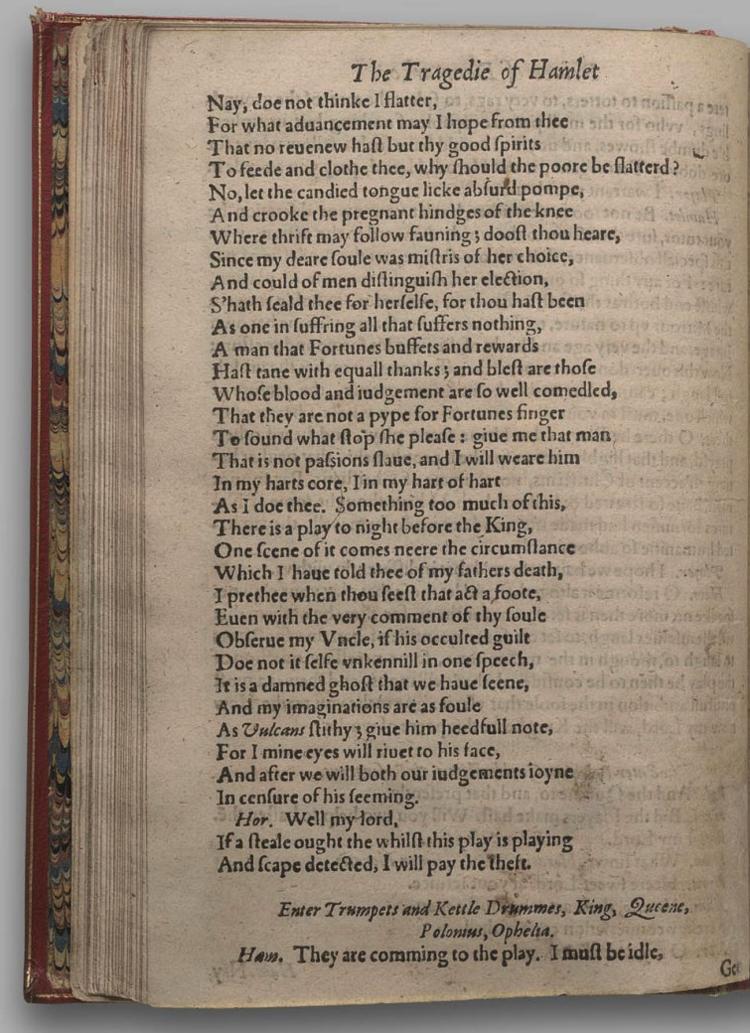 The Tragedie of Hamlet
Nay, doe not thinke I flatter,
For what aduancement may I hope from thee
That no reuenew haſt but thy good ſpirits
To feede and clothe thee, why ſhould the poore be flatterd?
No, let the candied tongue licke abſurd pompe,
And crooke the pregnant hindges of the knee
Where thrift may follow fauning; dooſt thou heare,
Since my deare ſoule was miſtris of her choice,
And could of men diſtinguiſh her election,
S'hath ſeald thee for herſelfe, for thou haſt been
As one in ſuffring all that ſuffers nothing,
A man that Fortunes buffets and rewards
Haſt tane with equall thanks; and bleſt are thoſe
Whoſe blood and iudgement are ſo well comedled,
That they are not a pype for Fortunes finger
To ſound what ſtop ſhe pleaſe: giue me that man
That is not paſsions ſlaue, and I will weare him
In my harts core, I in my hart of hart
As I doe thee. Something too much of this,
There is a play to night before the King,
One ſcene of it comes neere the circumſtance
Which I haue told thee of my fathers death,
I prethee when thou ſeeſt that act a foote,
Euen with the very comment of thy ſoule
Obſerue my Vncle, if his occulted guilt
Doe not it ſelfe vnkennill in one ſpeech,
It is a damned ghoſt that we haue ſeene,
And my imaginations are as foule
As Vulcans ſtithy; giue him heedfull note,
For I mine eyes will riuet to his face,
And after we will both our iudgements ioyne
In cenſure of his ſeeming.
Hor. Well my lord,
If a ſteale ought the whilſt this play is playing
And ſcape detected, I will pay the theft.
Enter Trumpets and Kettle Drummes, King, Queene,
Polonius, Ophelia.
Ham. They are comming to the play. I muſt be idle,